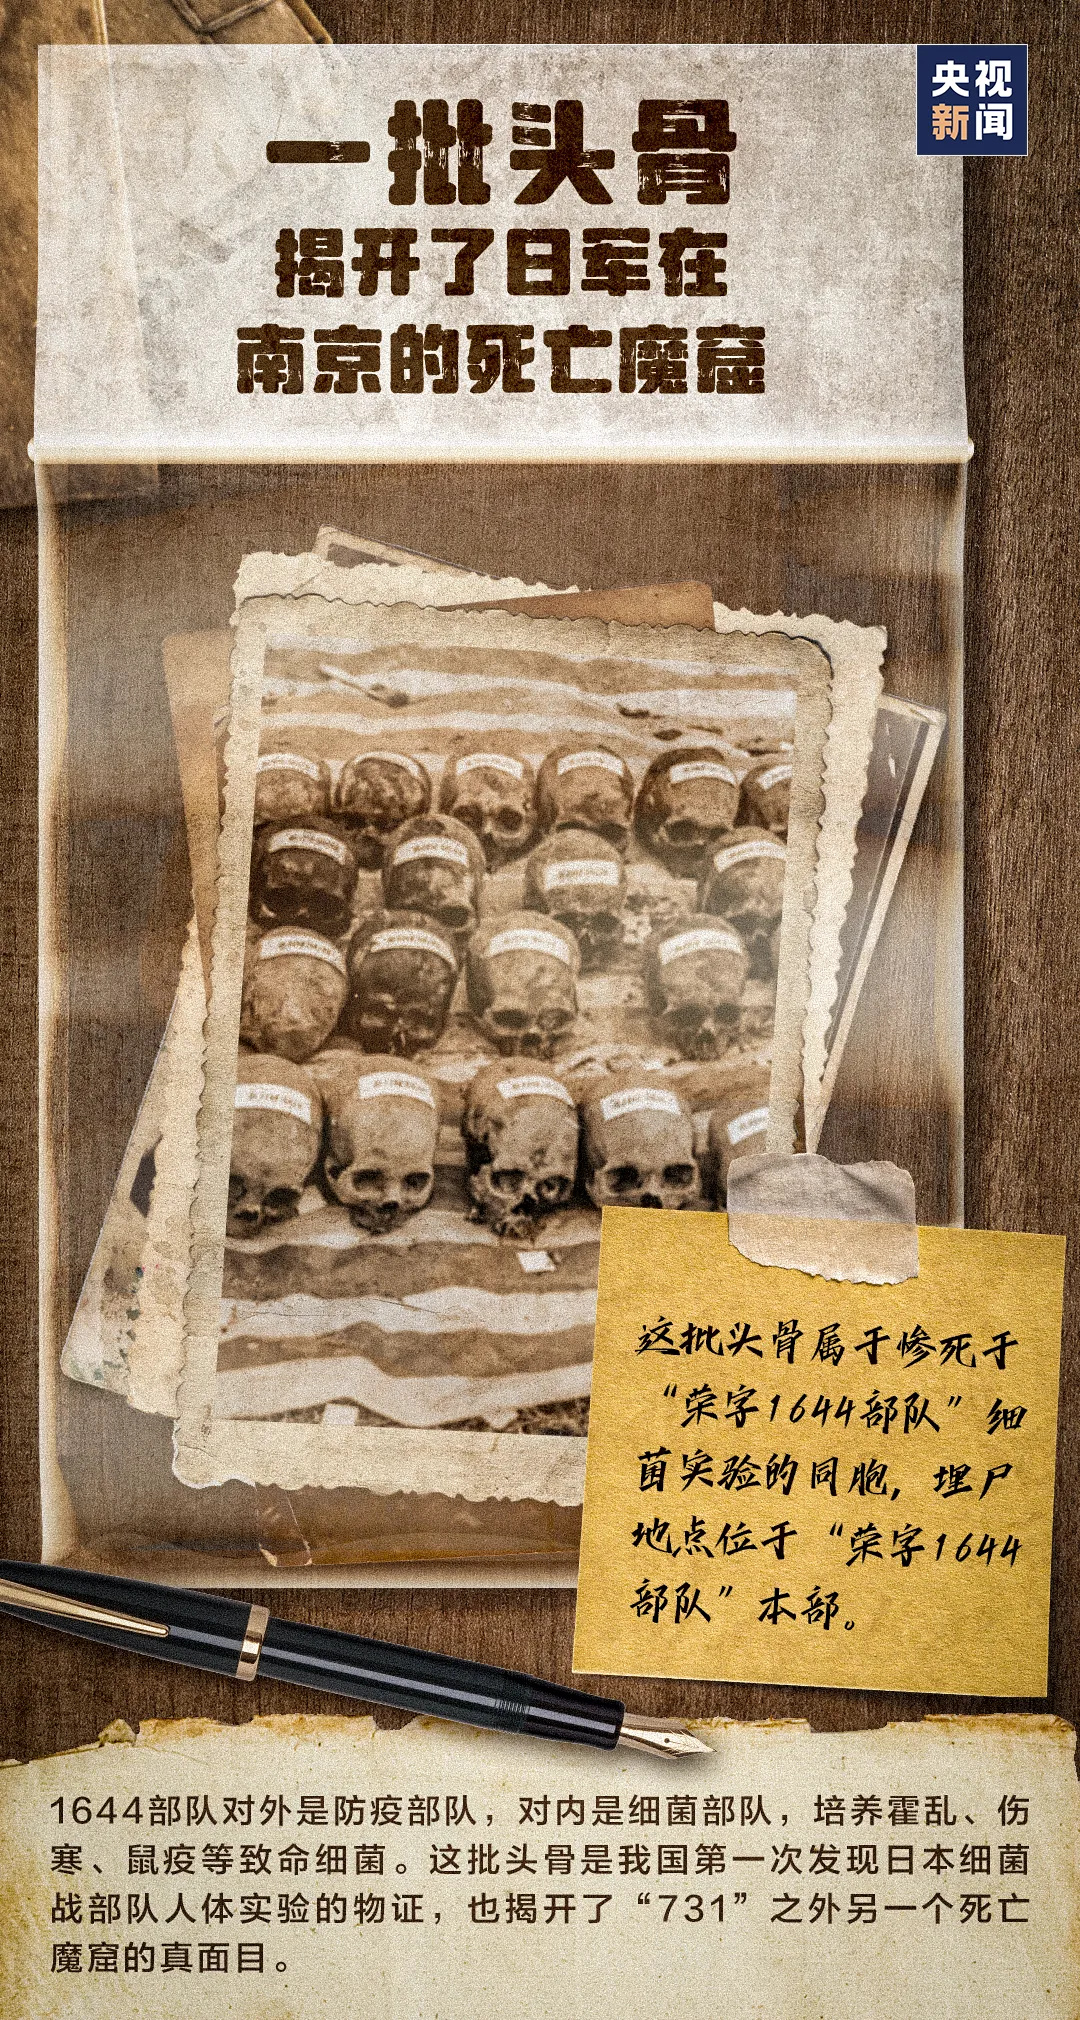 央视
新闻
一批头骨
揭开了日军在
南京的死亡魔窟
这批头骨属于惨死于
“荣字1644部队”细
菌实验的同胞，埋尸
地点位于“荣字1644
部队”本部。
1644部队对外是防疫部队，对内是细菌部队，培养霍乱、伤
寒、鼠疫等致命细菌。这批头骨是我国第一次发现日本细菌
战部队人体实验的物证，也揭开了“731”之外另一个死亡
魔窟的真面目。